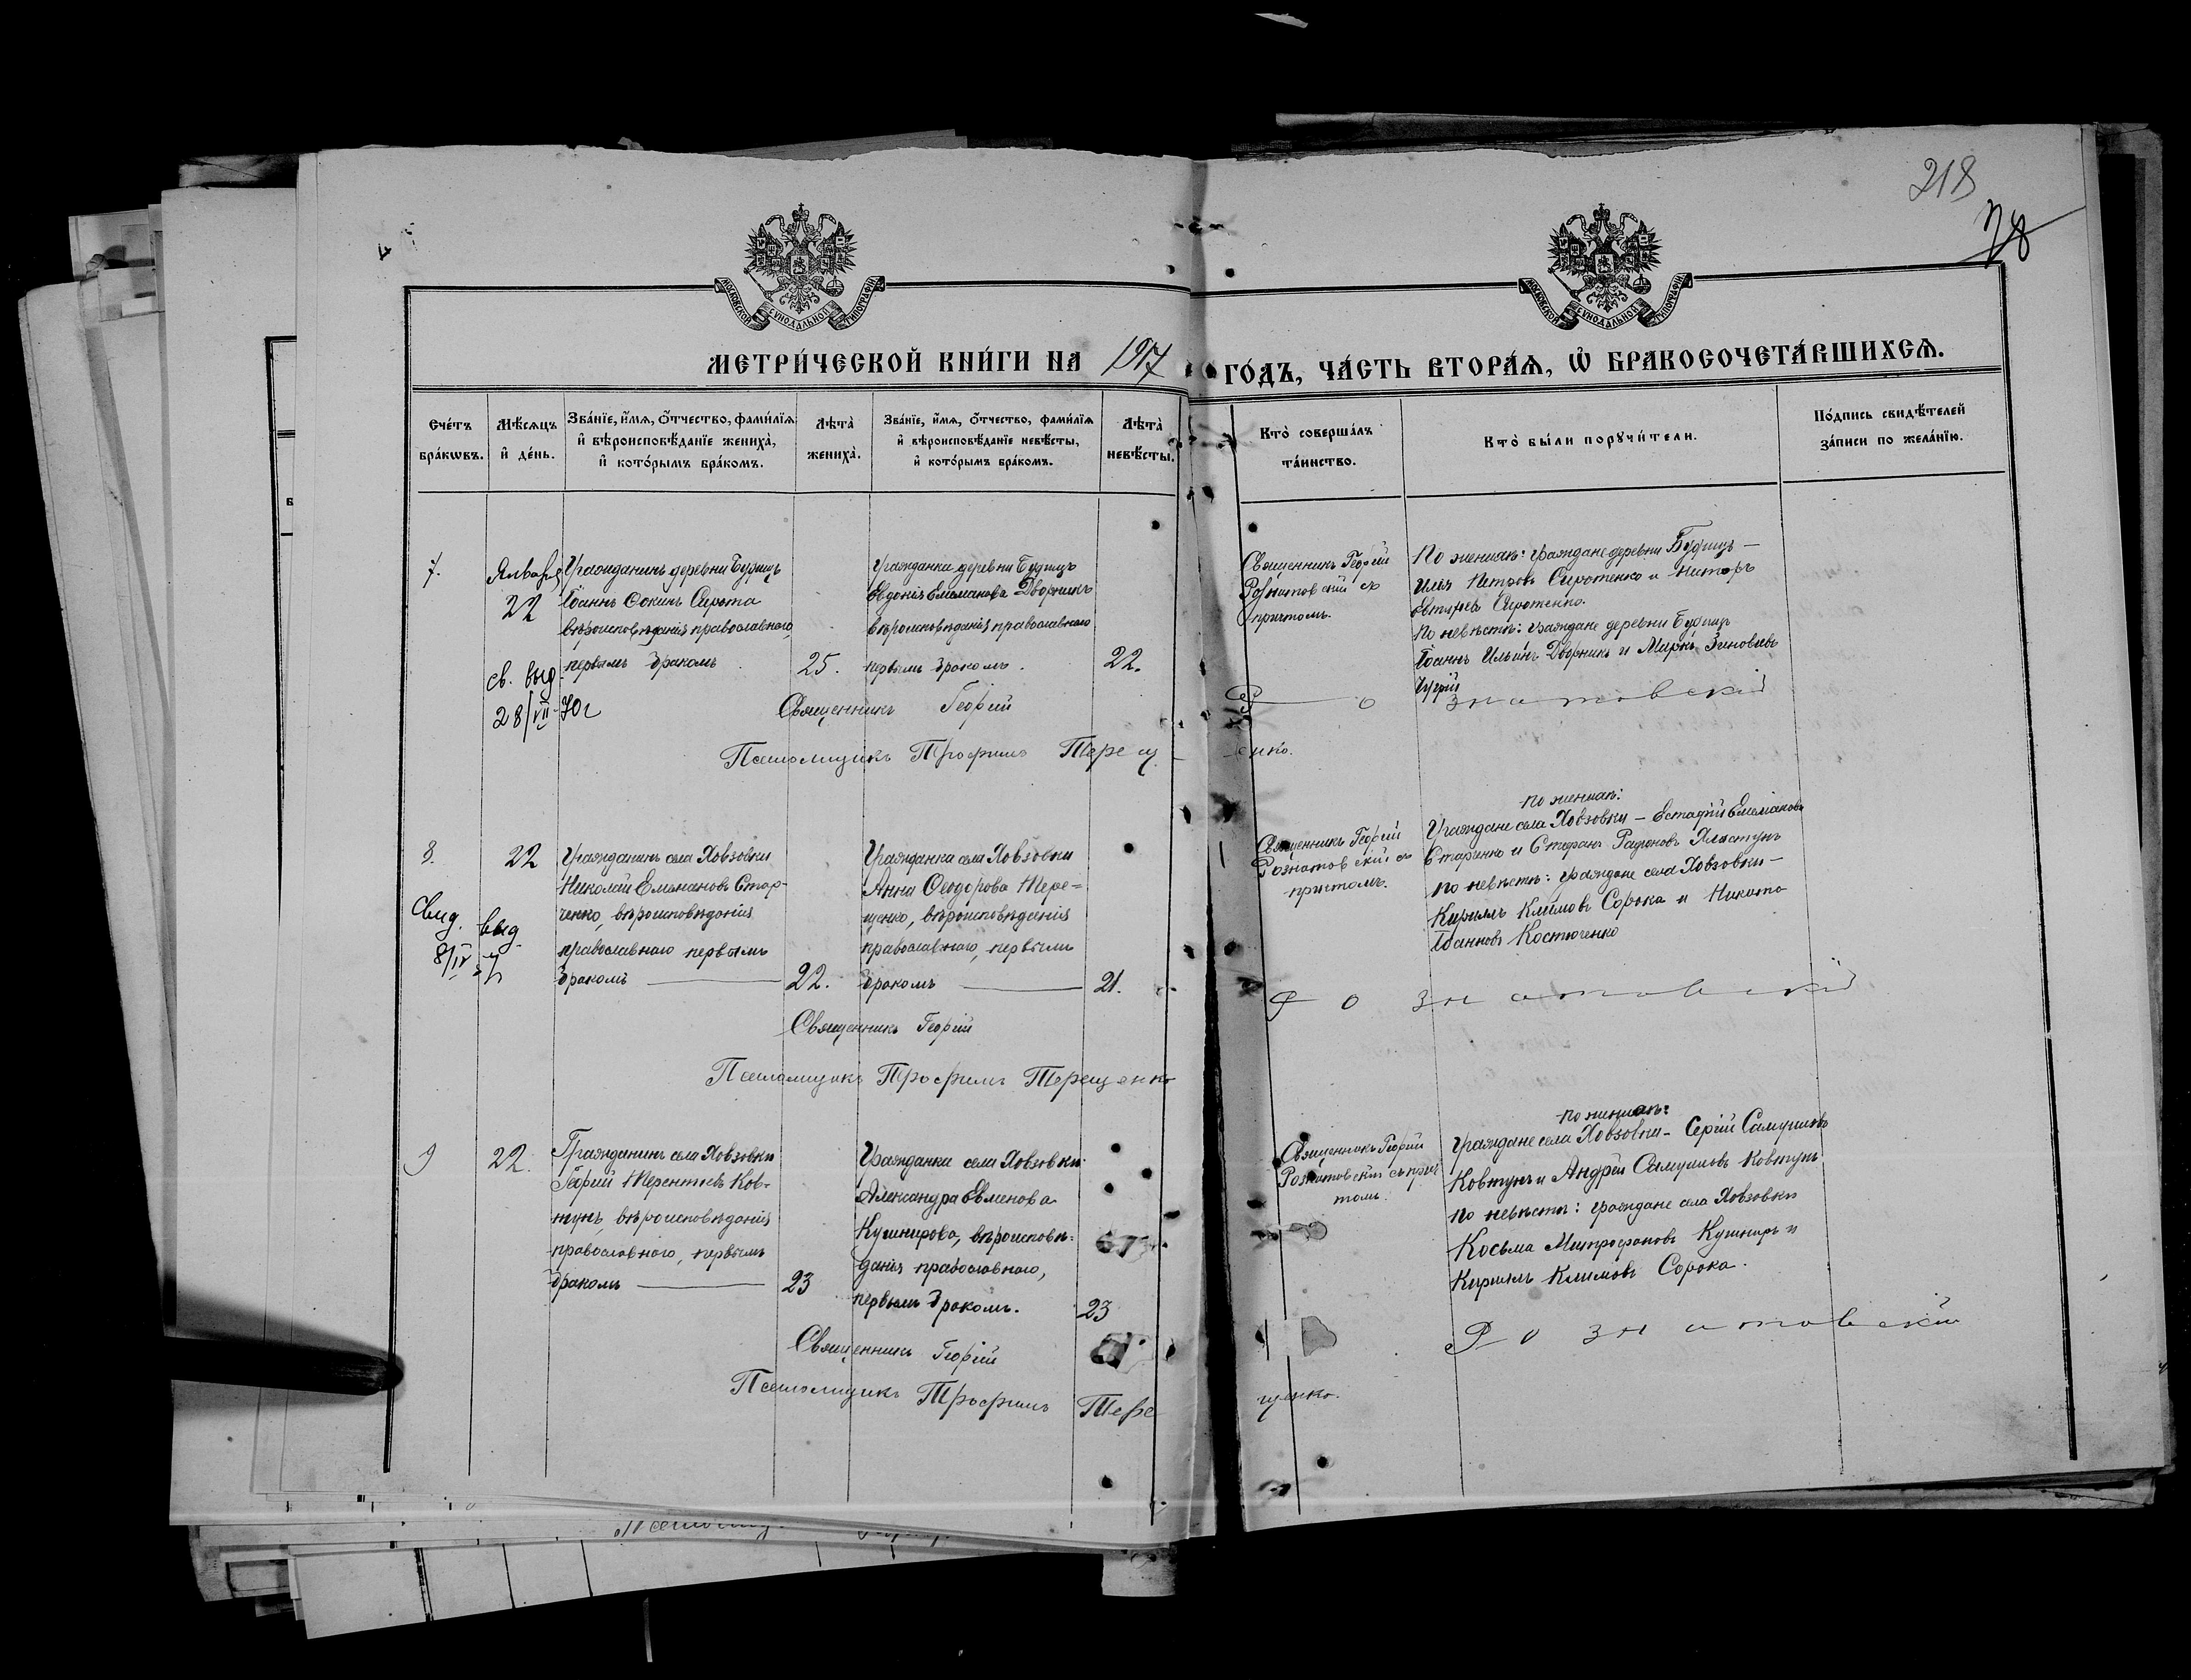 218
78
МОСКОВСКОЙ СУНОДАЛЬНОЙ ТИПОГРАФІИ
МОСКОВСКОЙ СУНОДАЛЬНОЙ ТИПОГРАФІИ
МЕТРИ́ЧЕСКОЙ КНИ́ГИ НА 1917 ГО́ДЪ, ЧА́СТЬ ВТОРА́Ѧ, Ѽ БРАКОСОЧЕТА́ВШИХСѦ.
Сче́тъ бра́кѡвъ.
Мѣ́сѧцъ и҆ де́нь.
Зва́нїе, и҆́мѧ, ѻ҆́тчество, фами́лїѧ и҆ вѣроисповѣ́данїе жениха̀, и҆ кото́рымъ бра́комъ.
Лѣта̀ жениха̀.
Зва́нїе, и҆́мѧ, ѻ҆́тчество, фами́лїѧ и҆ вѣроисповѣ́данїе невѣ́сты, и҆ кото́рымъ бра́комъ.
Лѣта̀ невѣ́сты.
Кто̀ соверша́лъ та́инство.
Кто̀ бы́ли порꙋчи́тели.
По́дпись свидѣ́телей за́писи по жела́нїю.
7.
Января
22
св. выд
28/VII-70г
Гражданинъ деревни Будищъ
Іоаннъ Фокинъ Сирота
вѣроисповѣданія православнаго,
первымъ бракомъ
25.
Гражданка деревни Будищъ
Евдокія Емеліанова Дворникъ
вѣроисповѣданія православнаго
первымъ бракомъ.
22.
Священникъ Георгій
Рознатовскій съ
причтомъ.
По женихѣ: граждане деревни Будищъ —
Илія Петровъ Сиротенко и
Сиротенко.
По невѣстѣ: граждане деревни Будищъ
Іоаннъ Ильинъ Дворникъ и Миронъ Зиновіевъ
Священникъ Георгій Рознатовскій
Псаломщикъ Трофимъ Терещенко.
8.
22
Свид. выд.
8/IV
Гражданинъ села Ховзовки
Николай Емеліановъ Стар-
ченко, вѣроисповѣданія
православнаго первымъ
бракомъ
22.
Гражданка села Ховзовки
Анна Ѳеодорова Тере=
щенко, вѣроисповѣданія
православнаго, первымъ
бракомъ
21.
Священникъ Георгій
Рознатовскій съ
причтомъ.
по женихѣ:
Граждане села Ховзовки — Емеліановъ
Старченко и Стефанъ Хластунъ
по невѣстѣ: граждане села Ховзовки —
Кириллъ Климовъ Сорока и Никита
Іоанновъ Костюченко
Священникъ Георгій Рознатовскій
Псаломщикъ Трофимъ Терещенко
9
22.
Гражданинъ села Ховзовки
Георгій Терентіевъ Ков-
тунъ, вѣроисповѣданія
православнаго, первымъ
бракомъ
23
Гражданка села Ховзовки
Александра Евменова
Кушнирова, вѣроисповѣ=
данія православнаго,
первымъ бракомъ.
23
Священникъ Георгій
Рознатовскій съ прич
томъ.
по женихѣ:
Граждане села Ховзовки — Сергій Самуиловъ
Ковтунъ и Андрей Самуиловъ Ковтунъ
по невѣстѣ: граждане села Ховзовки
Косьма Митрофановъ Кушниръ и
Кириллъ Климовъ Сорока.
Священникъ Георгій Рознатовскій
Псаломщикъ Трофимъ Терещенко.